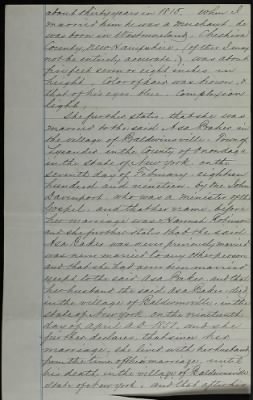 about thirty years in 1818. When I
married him he was a merchant, he
was born in Westmoreland, Cheshire
County, New Hampshire, (of this I may
not be entirely accurate,) was about
five feet seven or eight inches in
height. Color of hair was brown, &
that of his eyes blue. Complexion
light.
She further states, that she was
married to the said Asa Baker in
the village of Baldwinsville, Town of
Lysander in the County of Onondaga
in the State of New York on the
seventh day of February eighteen
hundred and nineteen by one John
Davenport who was a minister of the
Gospel, and that her name before
her marriage was Hannah
and she further states that the said
Asa Baker was never previously married
was never married to any other person
and that she had never been married
except to the said Asa Baker and that
her husband the said Asa Baker died
in the village of Baldwinsville, in the
State of New York on the nineteenth
day of April A.D. and she
further declares that since her
marriage, she lived with her husband
from the time of their marriage, until
his death, in the village of Baldwinsville
State of New York, and that after his